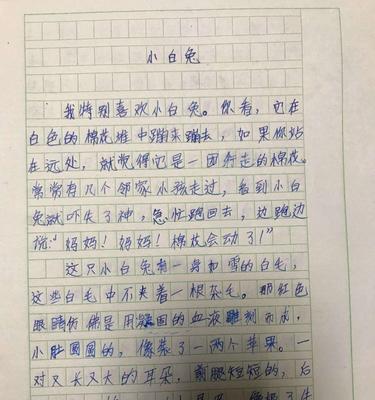 小白兔
我特别喜欢小白兔。你看,它在
白色的棉花堆中蹦来蹦去,如果你站
在远处,就觉得它是一团行走的棉花。
常常有几个邻家小孩走过,看到小白
兔就吓失了神,急忙跑回去,边跑边
说:“妈妈!妈妈!棉花会动了!”
这只小白兔有一身如雪的白毛,
这些白毛中不夹着一根杂毛。那红色
眼睛仿佛是用凝固的血液雕刻而成,
小肚圆圆的,像装了一两个苹果。一
对又长又大的耳朵,前腿短短的,后